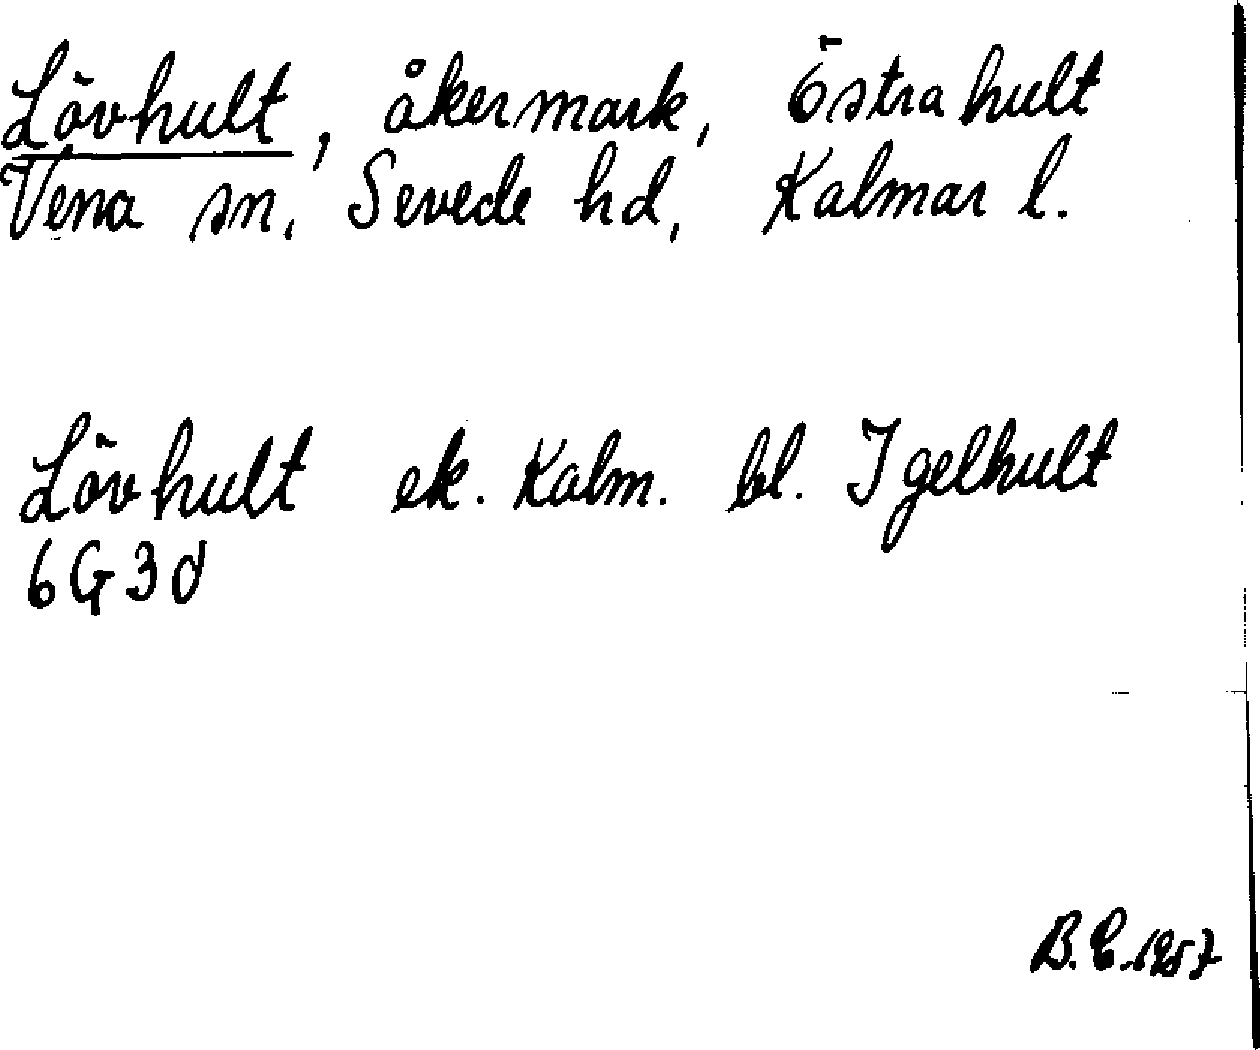 Lövhult, åkermark, Östra hult
Vena sn, Sevede hd, Kalmar l.
Lövhult ek. Kalm. bl. Igelhult
6G3d
B.E. 1957